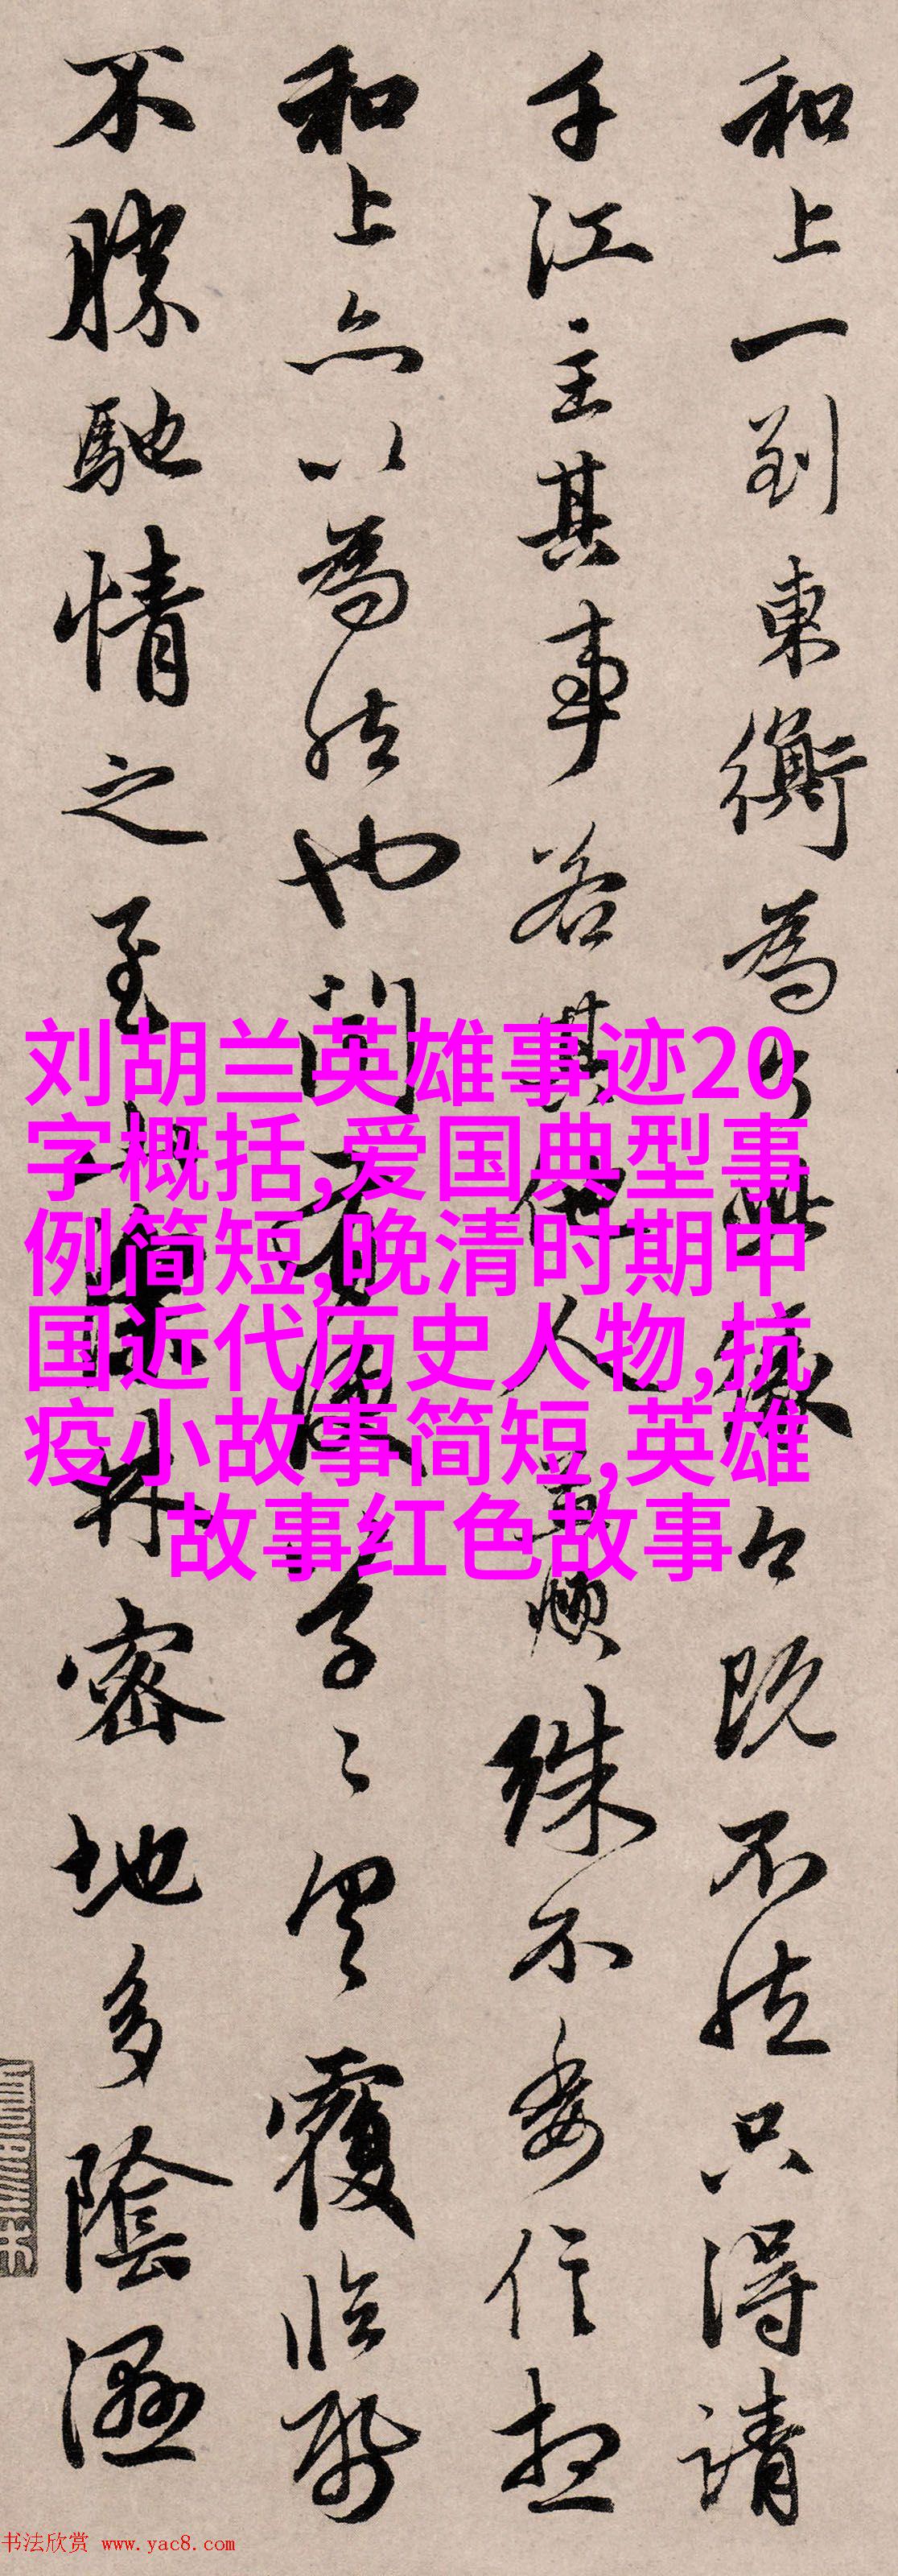 和上一到東衡為
々既不然只得請
千江主其事若其
人草順殊不委信想
和上亦以為然也聞
覆臨敬
不勝馳情之至
密地多陰濕
刘胡兰英雄事迹20
字概括,爱国典型事
例简短,晚清时期中
国近代历史人物,抗
疫小故事简短,英雄
故事红色故事
书法欣赏 www.yac8.com